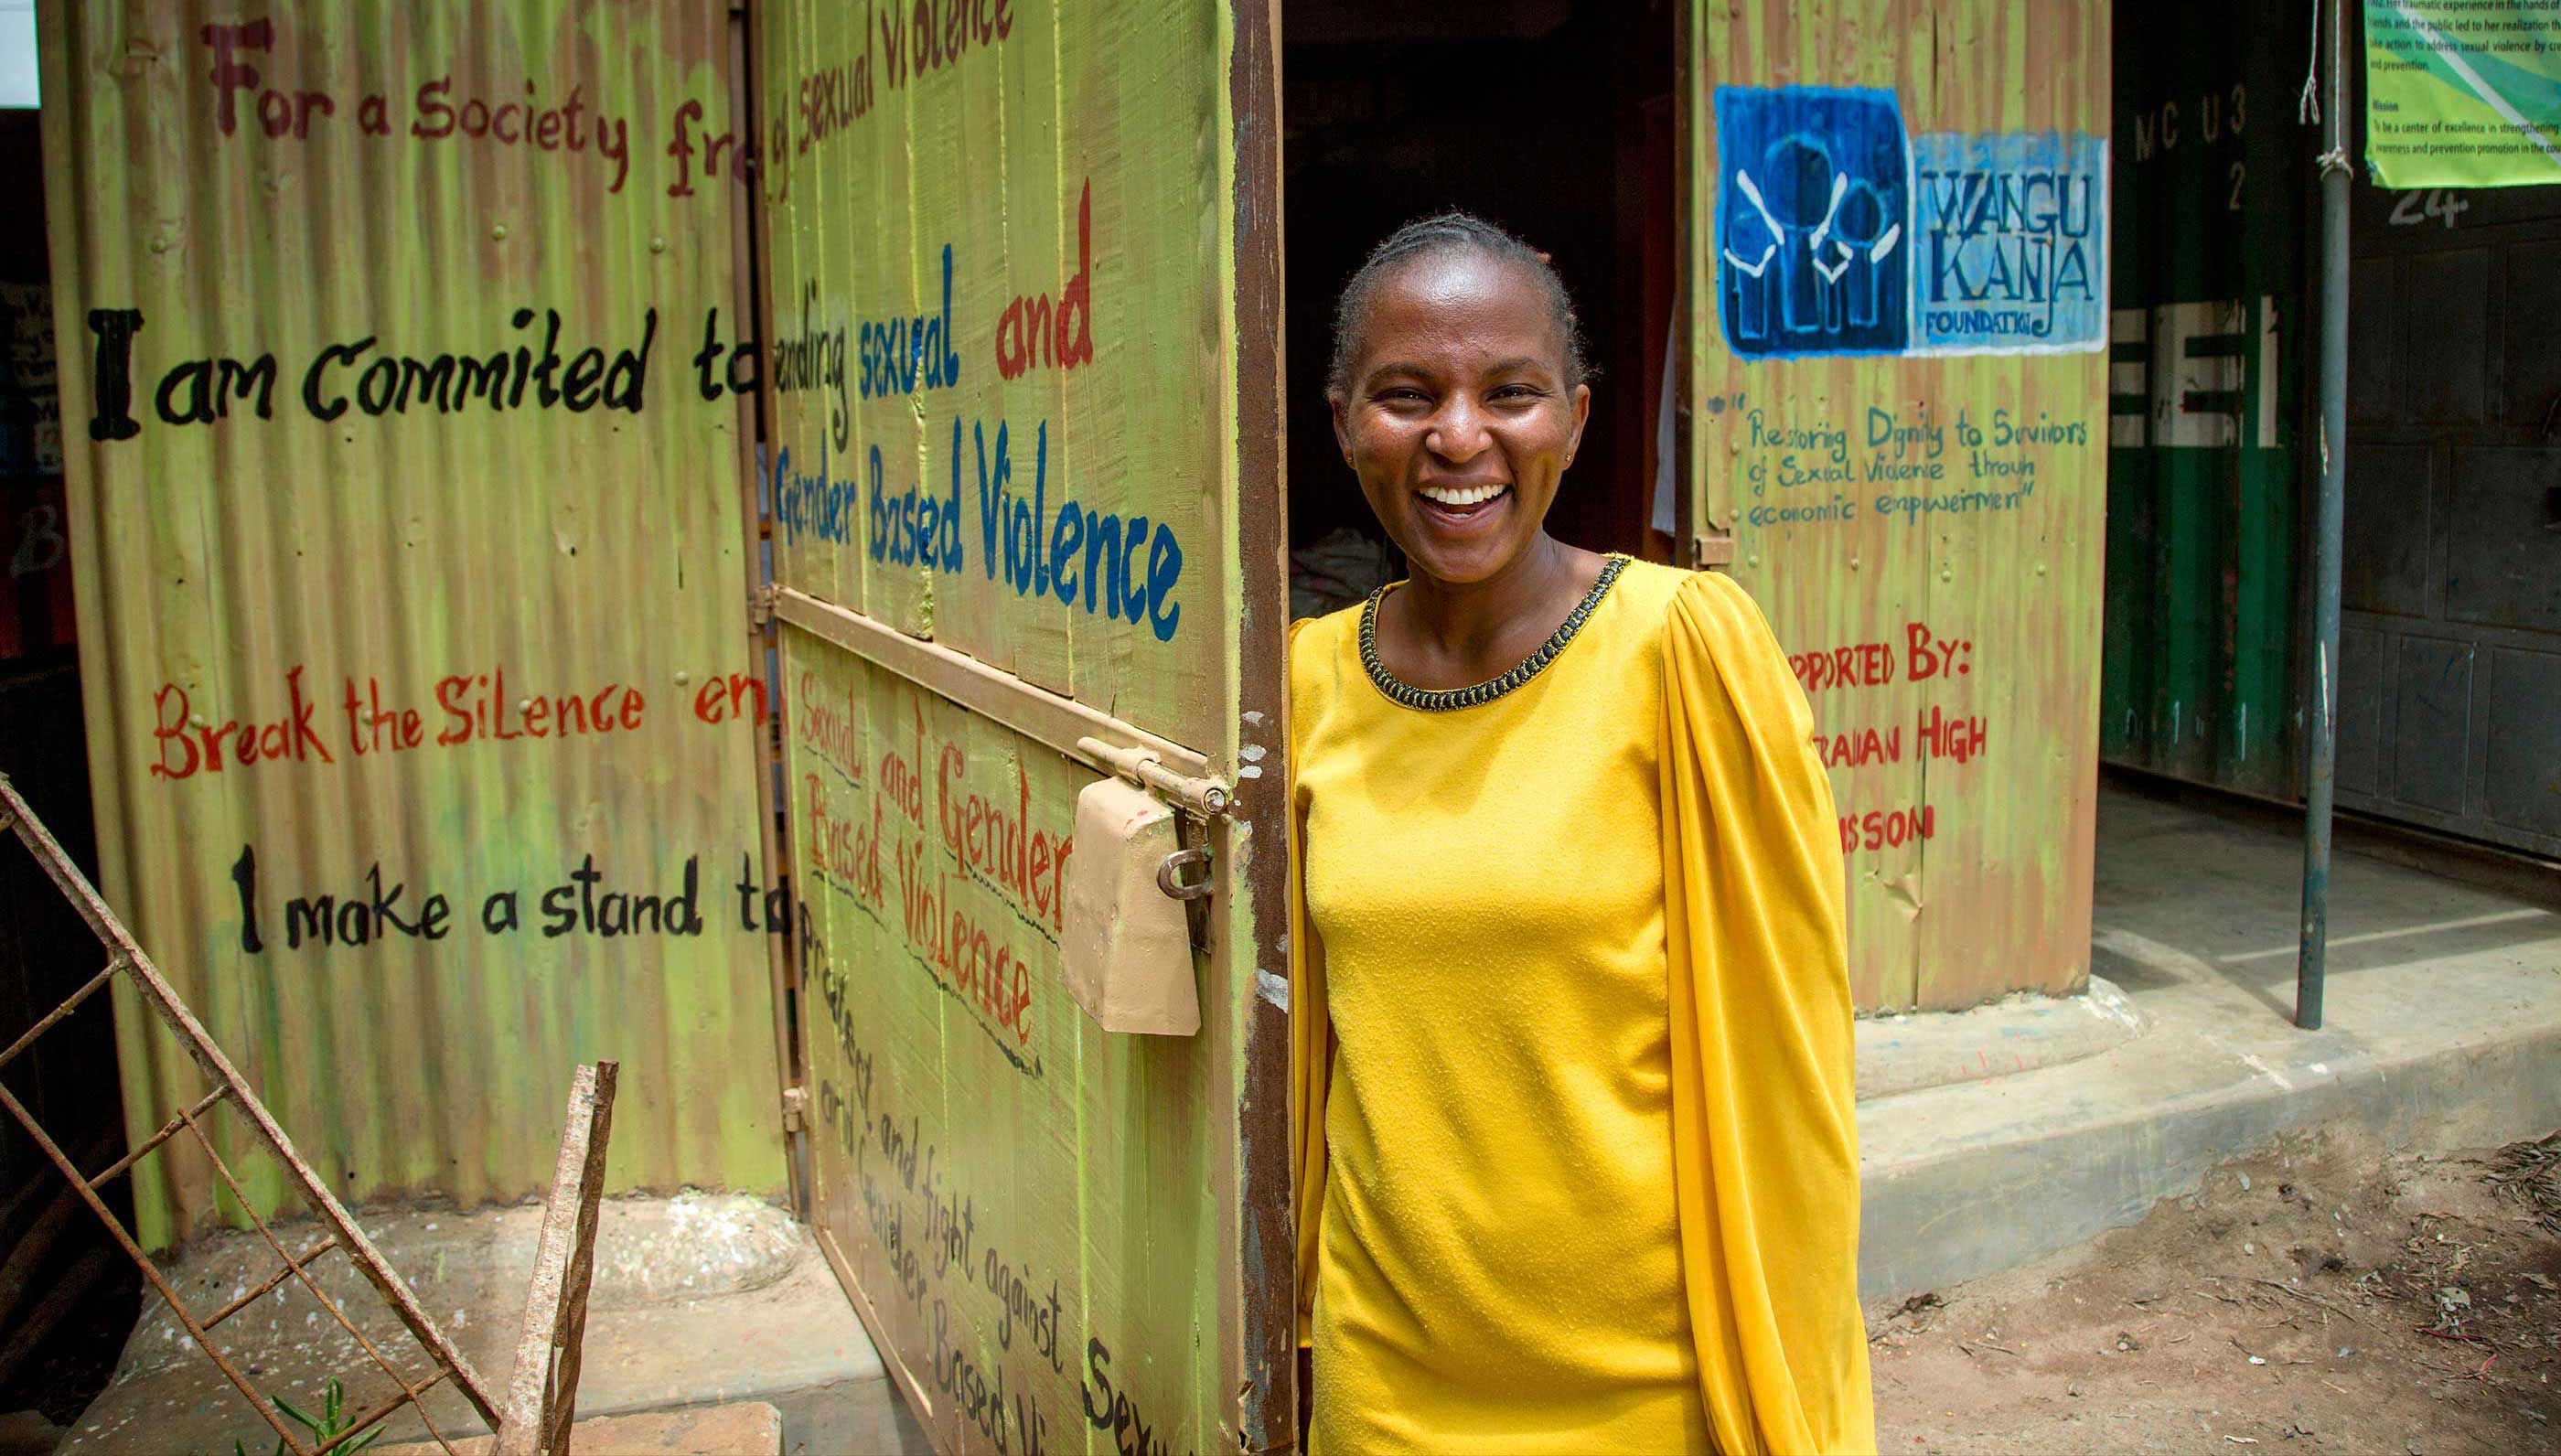 For a Society free of sexual Violence
I am Commited to ending sexual and
Gender Based Violence
Break the SiLence en
Sexual and Gender
Based Violence
I make a stand to protect and fight against Sexu
and Gender Based Vi
WANGU
KANJA
FOUNDATION
"Restoring Dignity to Survivors
of Sexual Violence
economic
SUPPORTED BY:
HIGH
MC U3
2
24
traumatic experience in the hands of
and the public led to her realization th
action to address sexual violence by
and prevention.
Mission
To be a center of excellence in strengthening
awareness and prevention promotion in the cou